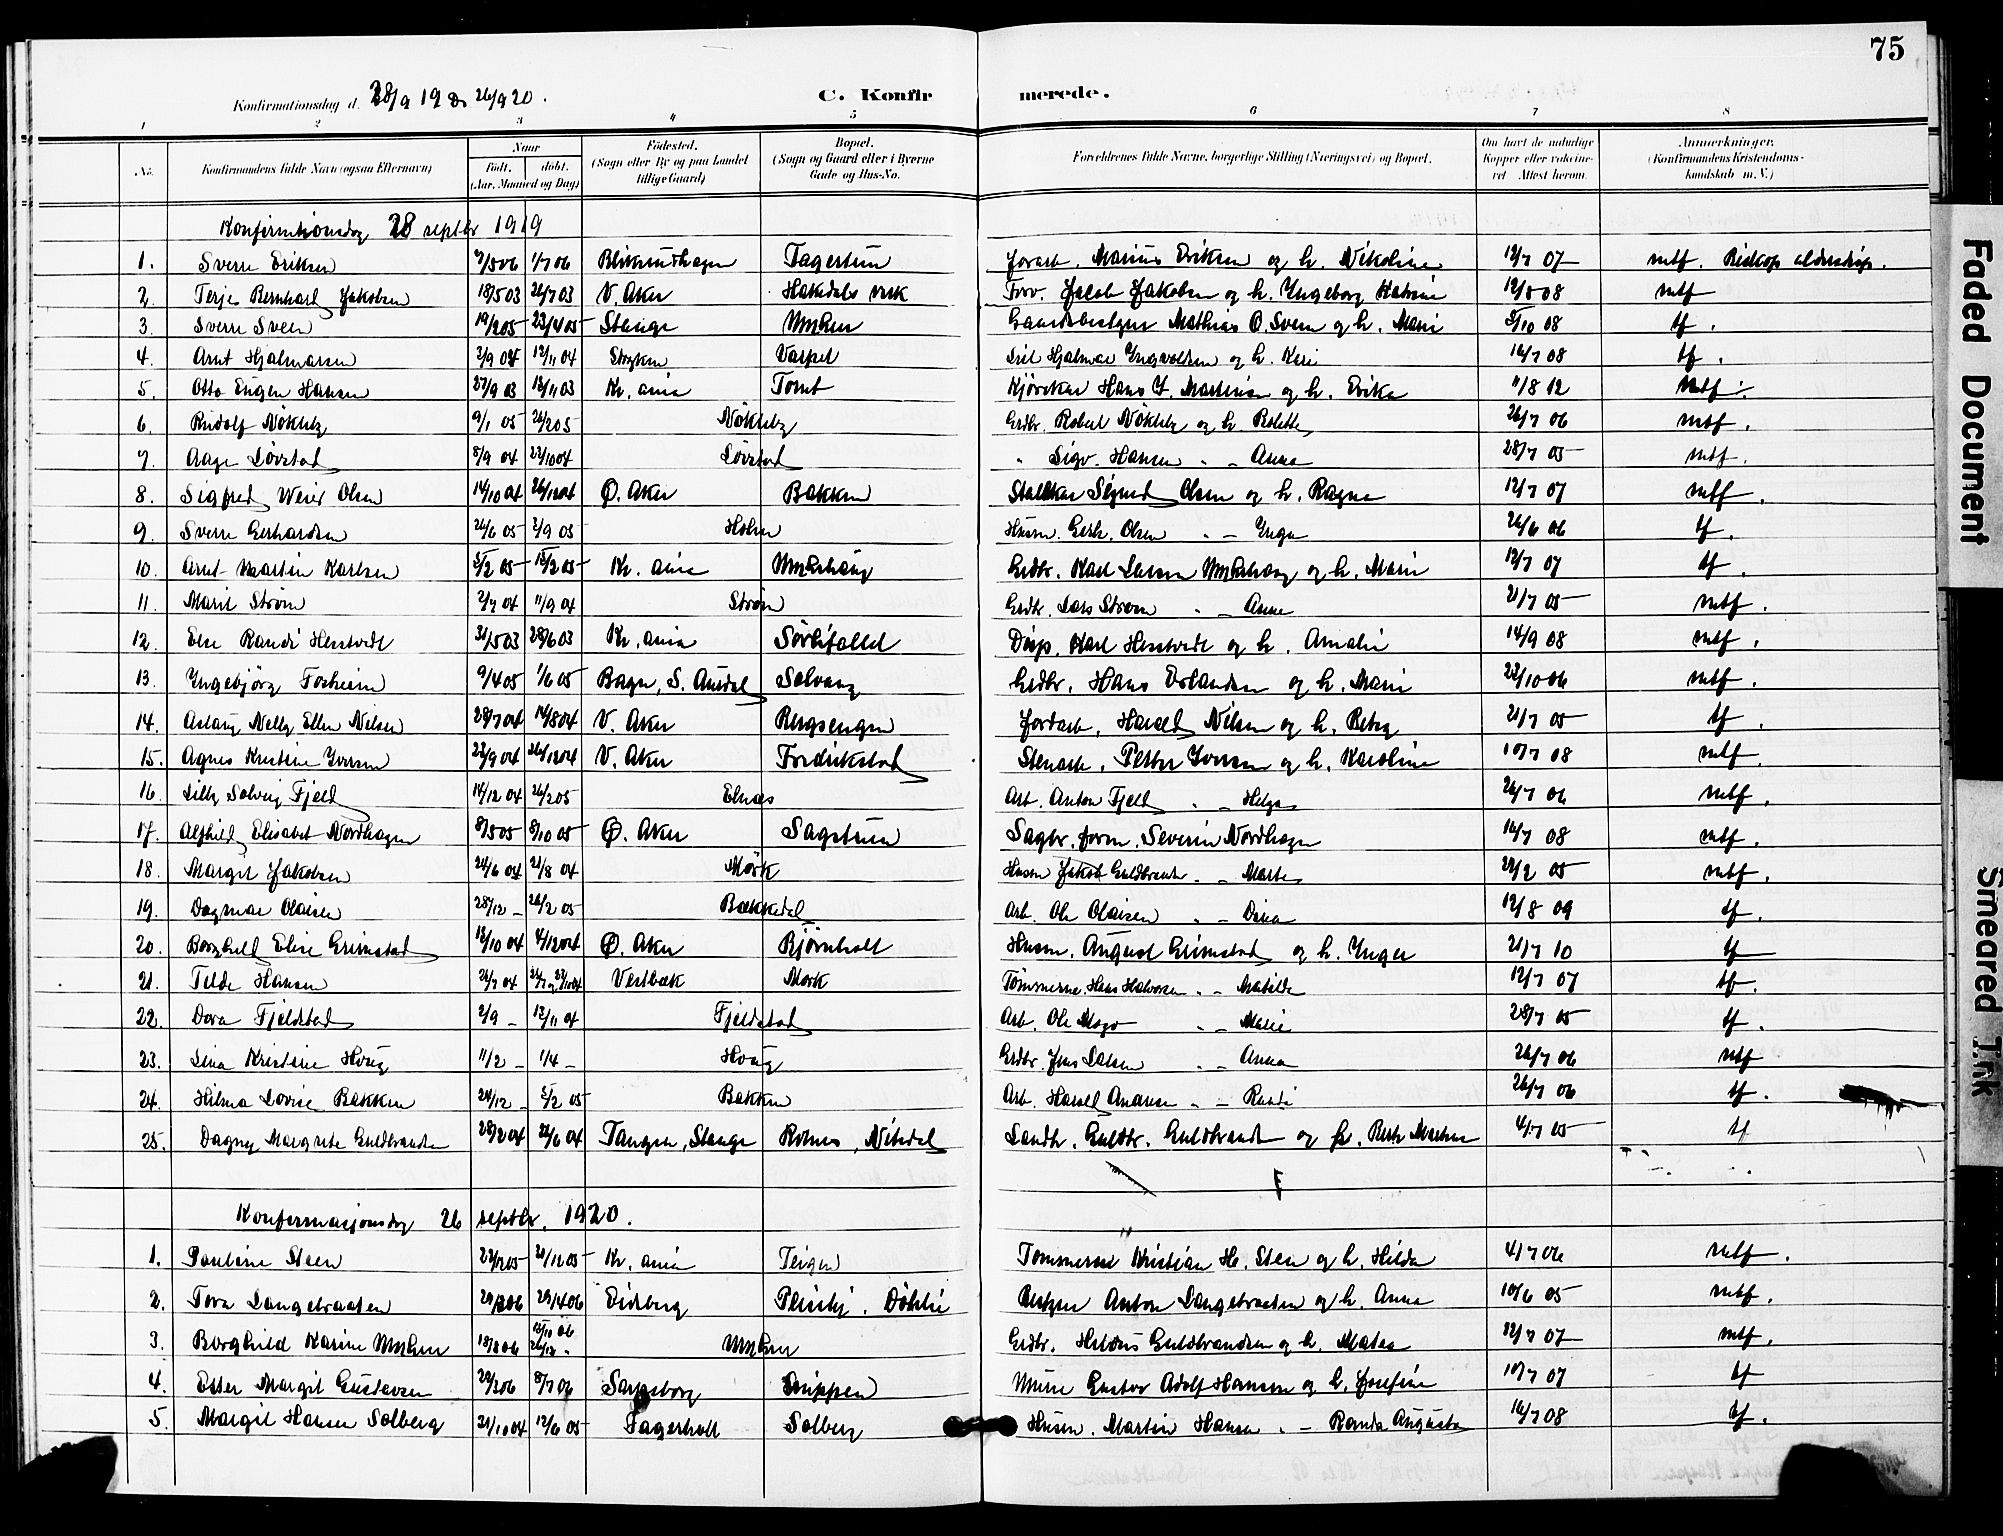 75
Konfirmationsdag d. 28/9 19 & 26/9 20.
C. Konfirmerede.
1 2 3 4 5 6 7 8
No. Konfirmandens fulde Navn (ogsaa Efternavn) Naar Født. døbt. (Aar, Maaned og Dag) Fødested. (Sogn eller By og paa Landet tillige Gaard) Bopæl. (Sogn og Gaard eller i Byerne Gade og Hus-No. Forældrenes fulde Navne, borgerlige Stilling (Næringsvei) og Bopæl. Om havt de naturlige Kopper eller vaccineret Attest herom. Anmerkninger. (Konfirmandens Kristendomskundskab m. V.)
Konfirmationsdag 28 septbr 1919
1. Sverre Eriksen 7/5 06 1/7 06 Fagertun Forarb. Marius Eriksen og h. Nikoline 12/7 07 mtf. Biskop aldersdisp.
2. Terje Bernhard Jakobsen 18/5 03 26/7 03 V. Aker Hakedals verk Forv. Jacob Jakobsen og h. Ingeborg Katrine 12/8 08 mtf
3. Sverre Sveen 19/2 05 23/4 05 Stange Mathias O. Sveen og h. Marie 5/10 08 tf.
4. Arnt Hjalmarsen 2/9 04 12/11 04 Stryken Varpet Hjalmar Yngvaldsen og h. Kari 16/7 08 tf.
5. Otto Eugen Hansen 27/9 03 12/11 03 Kr. ania Tomt Kjørekar Hans J. Martinsen og h. Erika 11/8 12 mtf.
6. Rudolf Nökleby 9/1 05 26/2 05 Nökleby Grdbr. Robert Nökleby og h. Rolette 26/7 06 mtf.
7. Aage Lövstad 8/9 04 23/10 04 Lövstad " Sigv. Hansen " - Anna 28/7 05 mtf.
8. Sigfred Weier Olsen 14/10 04 26/12 04 Ø. Aker Bakken Staldkar Sigurd Olsen og h. Ragna 12/7 07 mtf.
9. Sverre Gerhardsen 26/6 05 3/9 05 Holm Husm. Gerh. Olsen " - Inga 26/6 06 tf.
10. Arnt Martin Karlsen 5/2 05 15/2 05 Kr. ania Mykehaug Grdbr. Karl Larsen Mykehaug og h. Marie 12/7 07 tf.
11. Marit Strøm 2/7 04 11/9 04 Strøm Grdbr. Lars Strøm " - Anne 21/7 05 mtf.
12. Else Randi Herstvedt 31/5 03 28/6 03 Kr. ania Sörlifallet Disp. Karl Herstvedt og h. Amalie 14/9 08 mtf.
13. Ingebjörg Forheim 9/4 05 1/6 05 Bagn, S. Aurdal Solvang Grdbr. Hans Erlandsen og h. Marie 23/10 06 mtf.
14. Aslaug Nelly Ellen Nilsen 28/7 04 14/8 04 V. Aker Bergsengen Jordarb. Harald Nilsen og h. Betzy 21/7 05 tf.
15. Agnes Kristine Iversen 23/9 04 26/12 04 V. Aker Fredrikstad Stenarb. Petter Iversen og h. Karoline 10/7 08 mtf.
16. Lilly Solveig Fjeld 14/12 04 26/2 05 Elnæs Arb. Anton Fjeld " - Helga 26/7 06 mtf.
17. Alfhild Elisabet Nordhagen 8/5 05 8/10 05 Ø. Aker Sagstuen Sagbr. form. Severin Nordhagen 16/7 08 mtf.
18. Margit Jakobsen 24/6 04 21/8 04 Mörk Husm Jakob Guldbrands. " - Marte 22/2 05 mtf.
19. Dagmar Olaisen 28/12 - 26/2 05 Bækkedal Arb. Ole Olaisen " - Dina 12/8 09 tf.
20. Borghild Elise Grimstad 13/10 04 4/12 04 Ø. Aker Bjørnholt Husm. August Grimstad og h. Inger 21/7 10 tf
21. Tilde Hansen 24/7 04 Vestbæk Mork Tømmerm. Hans Halvorsen " - Matilde 12/7 07 tf.
22. Dora Fjeldstad 2/9 - 13/11 04 Fjeldstad Arb. Ole Mago " - Marie 28/7 05 tf.
23. Lina Kristine Haug 11/2 - 1/4 - Haug Grdbr Jens Larsen " - Anna 26/7 06 mtf
24. Hilma Lovise Bakken 24/12 - 5/2 05 Bakken Arb. Harald Andersen " - Randi 26/7 06 tf.
25. Dagny Margrete Guldbrandsen 28/2 04 26/6 04 Tangen, Stange Rotnes, Nitedal Landh. Guldbr. Guldbrandsen og h. Berte Marthea 4/7 05 tf
Konfirmasjonsdag 26 septbr. 1920.
1. Pauline Steen 31/12 05 Kr. ania Teigen Tømmerm Kristian H. Steen og h. Hilda 4/7 06 mtf.
2. Tora Langebraaten 29/4 06 Eidsberg Anton Langebraaten og h. Anna 10/6 05 mtf.
3. Borghild Karine Myhren 18/8 06 Myhren Grdbr. Guldbrandsen og h. Matea 12/7 07 mtf.
4. Ester Margit Gustavsen 8/7 06 Sarpsborg Snippen Murer Gustav Adolf Hansen og h. Josefine 10/7 07 tf
5. Margit Hansen Solberg 21/10 04 12/6 05 Fagerholt Solberg Husm. Martin Hansen " - Randa Augusta 16/7 08 tf.
Faded Document
Smeared Ink